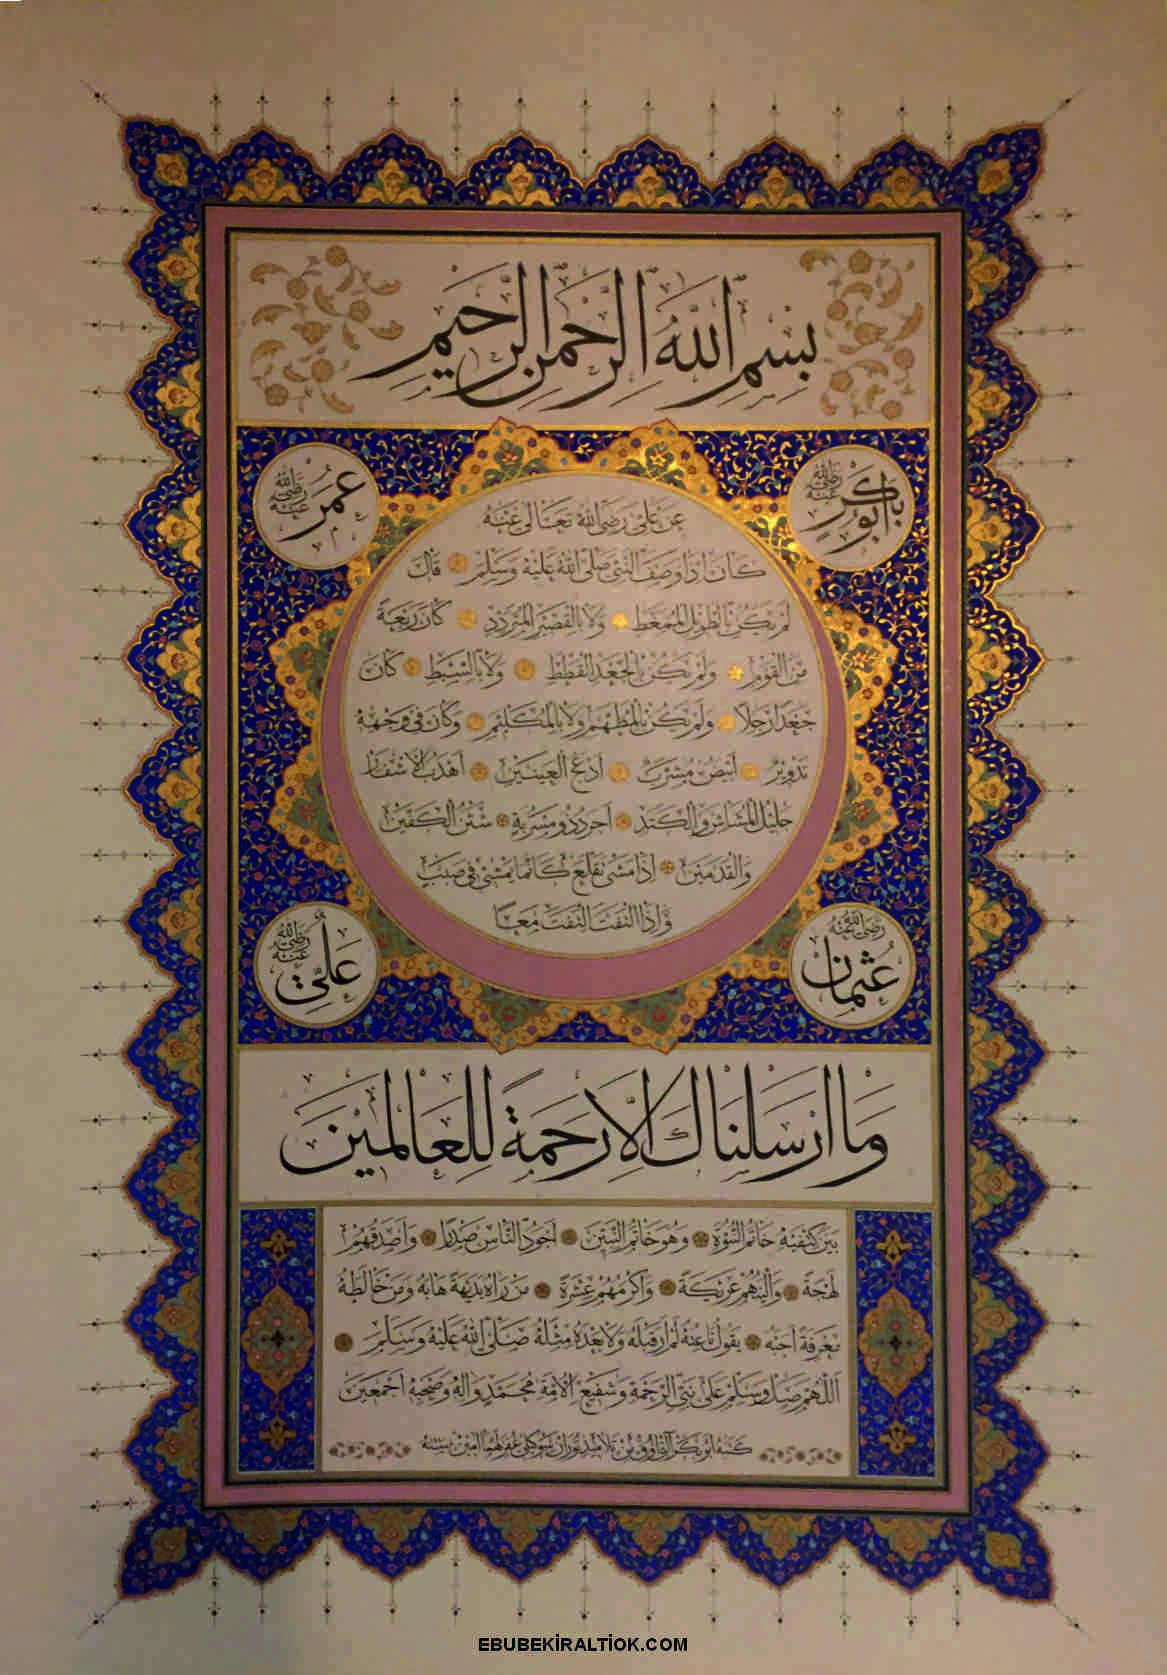 بِسْمِ اللّٰهِ الرَّحْمٰنِ الرَّحِيمِ
ابو بكر رضي الله عنه
عُمَرُ رضي الله عنه
عَنْ عَلِىٍّ رَضِىَ اللّٰهُ تَعَالٰى عَنْهُ
كَانَ اِذَا وَصَفَ النَّبِىَّ صَلَّى اللّٰهُ عَلَيْهِ وَسَلَّمَ قَالَ
لَمْ يَكُنْ بِالطَّوِيلِ الْمُمَغَّطِ وَلَا بِالْقَصِيرِ الْمُتَرَدِّدِ كَانَ رَبْعَةً
مِنَ الْقَوْمِ وَلَمْ يَكُنْ بِالْجَعْدِ الْقَطَطِ وَلَا بِالسَّبِطِ كَانَ
جَعْدًا رَجِلًا وَلَمْ يَكُنْ بِالْمُطَهَّمِ وَلَا بِالْمُكَلْثَمِ وَكَانَ فِى وَجْهِهِ
تَدْوِيرٌ اَبْيَضُ مُشْرَبٌ اَدْعَجُ الْعَيْنَيْنِ اَهْدَبُ الْاَشْفَارِ
جَلِيلُ الْمُشَاشِ وَالْكَتَدِ اَجْرَدُ ذُو مَسْرُبَةٍ شَثْنُ الْكَفَّيْنِ
وَالْقَدَمَيْنِ اِذَا مَشٰى تَقَلَّعَ كَاَنَّمَا يَمْشِى فِى صَبَبٍ
وَاِذَا الْتَفَتَ الْتَفَتَ مَعًا
عُثْمَان رضي الله عنه
عَلِيّ رضي الله عنه
وَمَا اَرْسَلْنَاكَ اِلَّا رَحْمَةً لِلْعَالَمِينَ
بَيْنَ كَتِفَيْهِ خَاتَمُ النُّبُوَّةِ وَهُوَ خَاتَمُ النَّبِيِّينَ اَجْوَدُ النَّاسِ صَدْرًا وَاَصْدَقُهُمْ
لَهْجَةً وَاَلْيَنُهُمْ عَرِيكَةً وَاَكْرَمُهُمْ عِشْرَةً مَنْ رَاٰهُ بَدِيهَةً هَابَهُ وَمَنْ خَالَطَهُ
مَعْرِفَةً اَحَبَّهُ يَقُولُ نَاعِتُهُ لَمْ اَرَ قَبْلَهُ وَلَا بَعْدَهُ مِثْلَهُ صَلَّى اللّٰهُ عَلَيْهِ وَسَلَّمَ
اَللّٰهُمَّ صَلِّ وَسَلِّمْ عَلٰى نَبِىِّ الرَّحْمَةِ وَشَفِيعِ الْاُمَّةِ مُحَمَّدٍ وَاٰلِهِ وَصَحْبِهِ اَجْمَعِينَ
كتبه ابو بكر من تلاميذ
EBUBEKİRALTIOK.COM